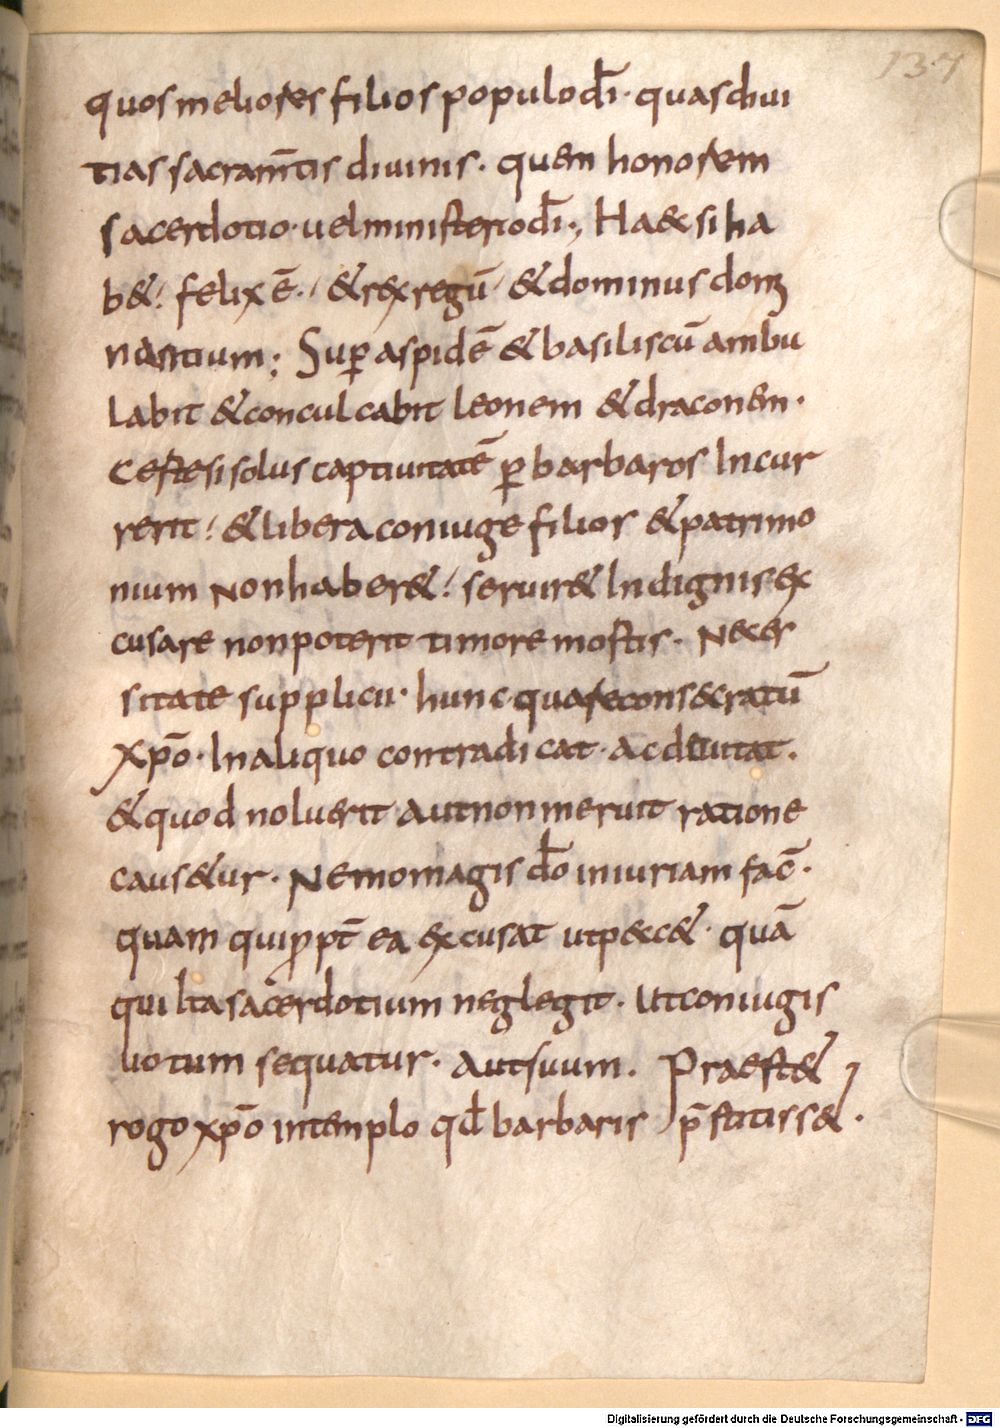 137
quos meliores filios populo dī· quas diui
tias sacram̄tis diuinis· quem honorem
sacerdotio· uel ministerio dī·, Ha& si ha
b&· felix ē·· & rex regū & dominus domi
nantium; Sup aspidē & basiliscū ambu
labit & conculcabit leonem & draconem·
Certe si solus captiuitatē p barbaros Incur
rerit· & libera coniuge filios & patrimo
nium Non haber&· seruir& Indignis ex
cusare non poterit timore mortis· Neces
sitate supplicii· hunc quare consecratū
xp̄o· In aliquo contradicat· ac deuitat·
& quod noluerit aut non meruit ratione
caus&ur· Nemo magis dō iniuriam fac̄·
quam qui ppt̄ ea excusat ut pecc&· quā
qui Ita sacerdotium neglegit· Ut coniugis
uotum sequatur· aut suum· Praest&
rogo xp̄o in templo qd barbaris p̄stitiss&·
Digitalisierung gefördert durch die Deutsche Forschungsgemeinschaft - DFG